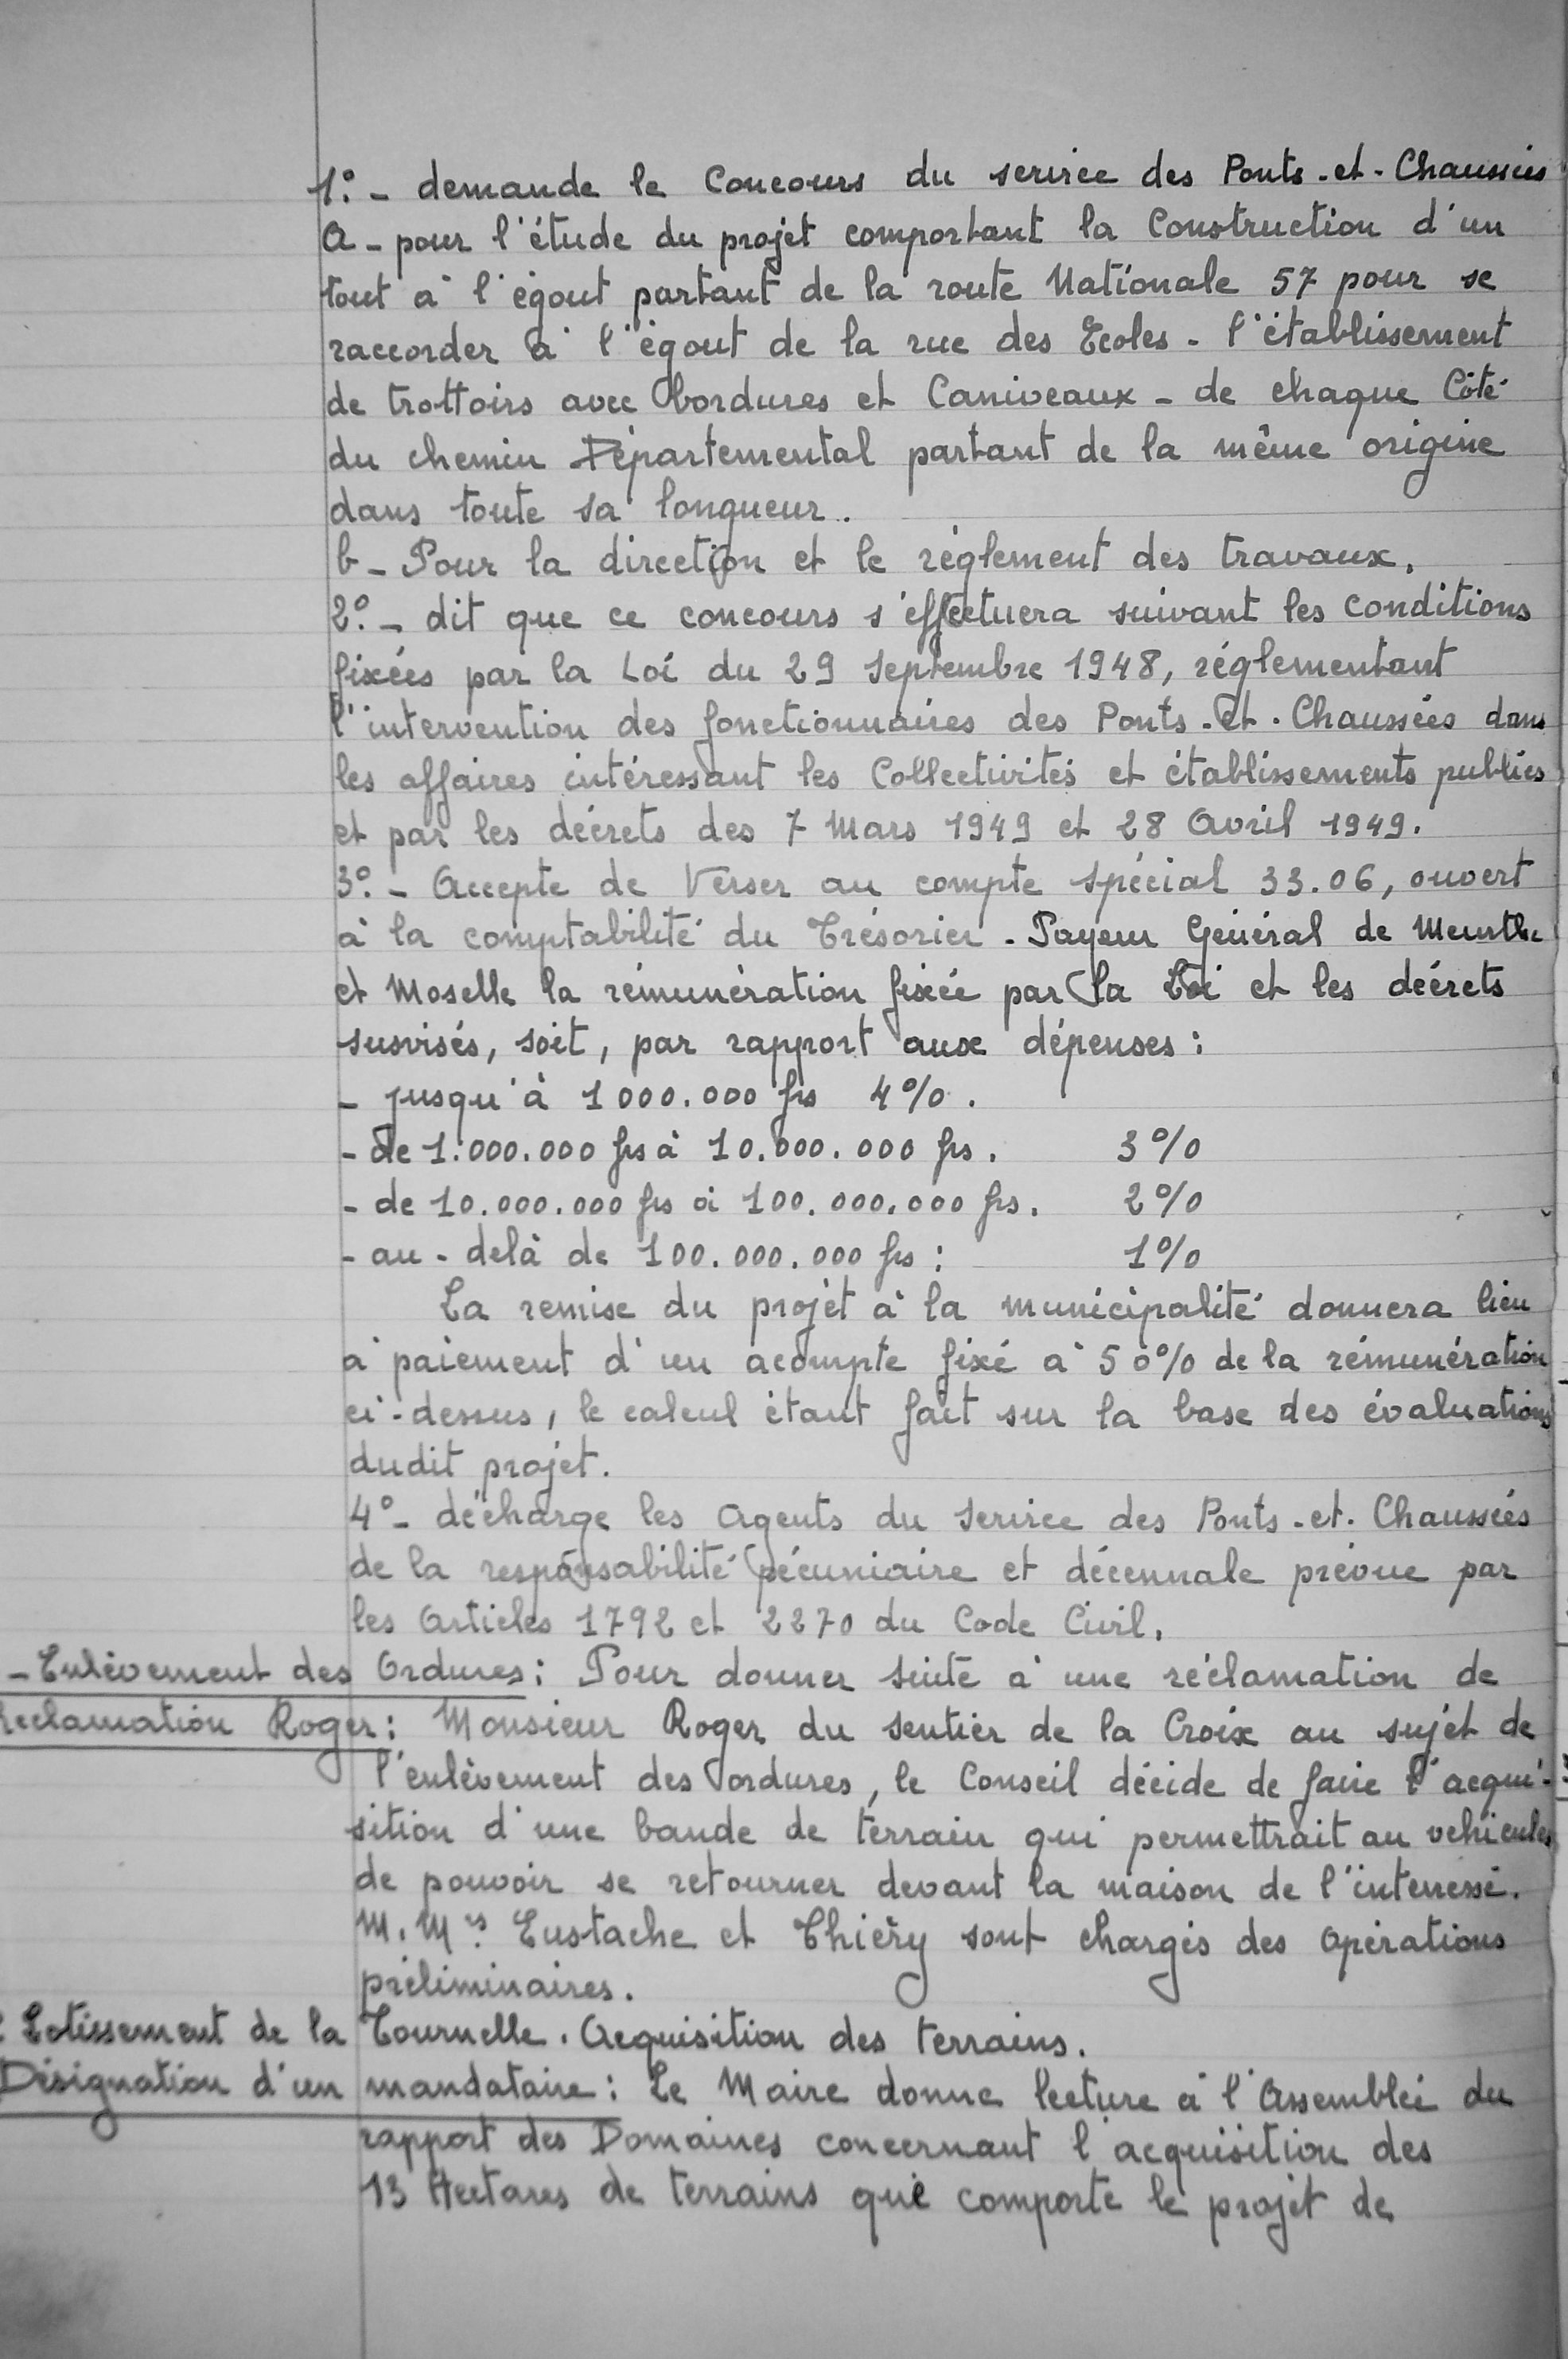 1°. - demande le Concours du service des Ponts-et-Chaussées
A - pour l'étude du projet comportant la Construction d'un
tout à l'égout partant de la route Nationale 57 pour se
raccorder à l'égout de la rue des Ecoles - l'établissement
de trottoirs avec bordures et Caniveaux - de chaque Côté
du chemin Départemental partant de la même origine
dans toute sa longueur.
b - Pour la direction et le réglement des travaux.
2°. - dit que ce concours s'effectuera suivant les conditions
fixées par la Loi du 29 Septembre 1948, réglementant
l'intervention des fonctionnaires des Ponts-et-Chaussées dans
les affaires intéressant les Collectivités et établissements publics
et par les décrets des 7 Mars 1949 et 28 Avril 1949.
3°. - Accepte de Verser au compte spécial 33.06, ouvert
à la comptabilité du Trésorier-Payeur Général de Meurthe
et Moselle la rémunération fixée par la Loi et les décrets
susvisés, soit, par rapport aux dépenses :
- jusqu'à 1000.000 frs 4%.
- de 1.000.000 frs à 10.000.000 frs. 3%
- de 10.000.000 frs à 100.000.000 frs. 2%
- au-delà de 100.000.000 frs : 1%
La remise du projet à la municipalité donnera lieu
à paiement d'un acompte fixé à 50% de la rémunération
ci-dessus, le calcul étant fait sur la base des évaluations
dudit projet.
4° - décharge les Agents du Service des Ponts-et-Chaussées
de la responsabilité pécuniaire et décennale prévue par
les Articles 1792 et 2270 du Code Civil.
- Enlèvement des Ordures : Pour donner suite à une réclamation de
Réclamation Roger : Monsieur Roger du sentier de la Croix au sujet de
l'enlèvement des ordures, le Conseil décide de faire l'acqui-
sition d'une bande de terrain qui permettrait au vehicules
de pouvoir se retourner devant la maison de l'interressé.
M. Mrs Eustache et Thiéry sont chargés des Opérations
préliminaires.
Lotissement de la Tournelle. Acquisition des terrains.
Désignation d'un mandataire : Le Maire donne lecture à l'Assemblée du
rapport des Domaines concernant l'acquisition des
13 Hectares de terrains que comporte le projet de